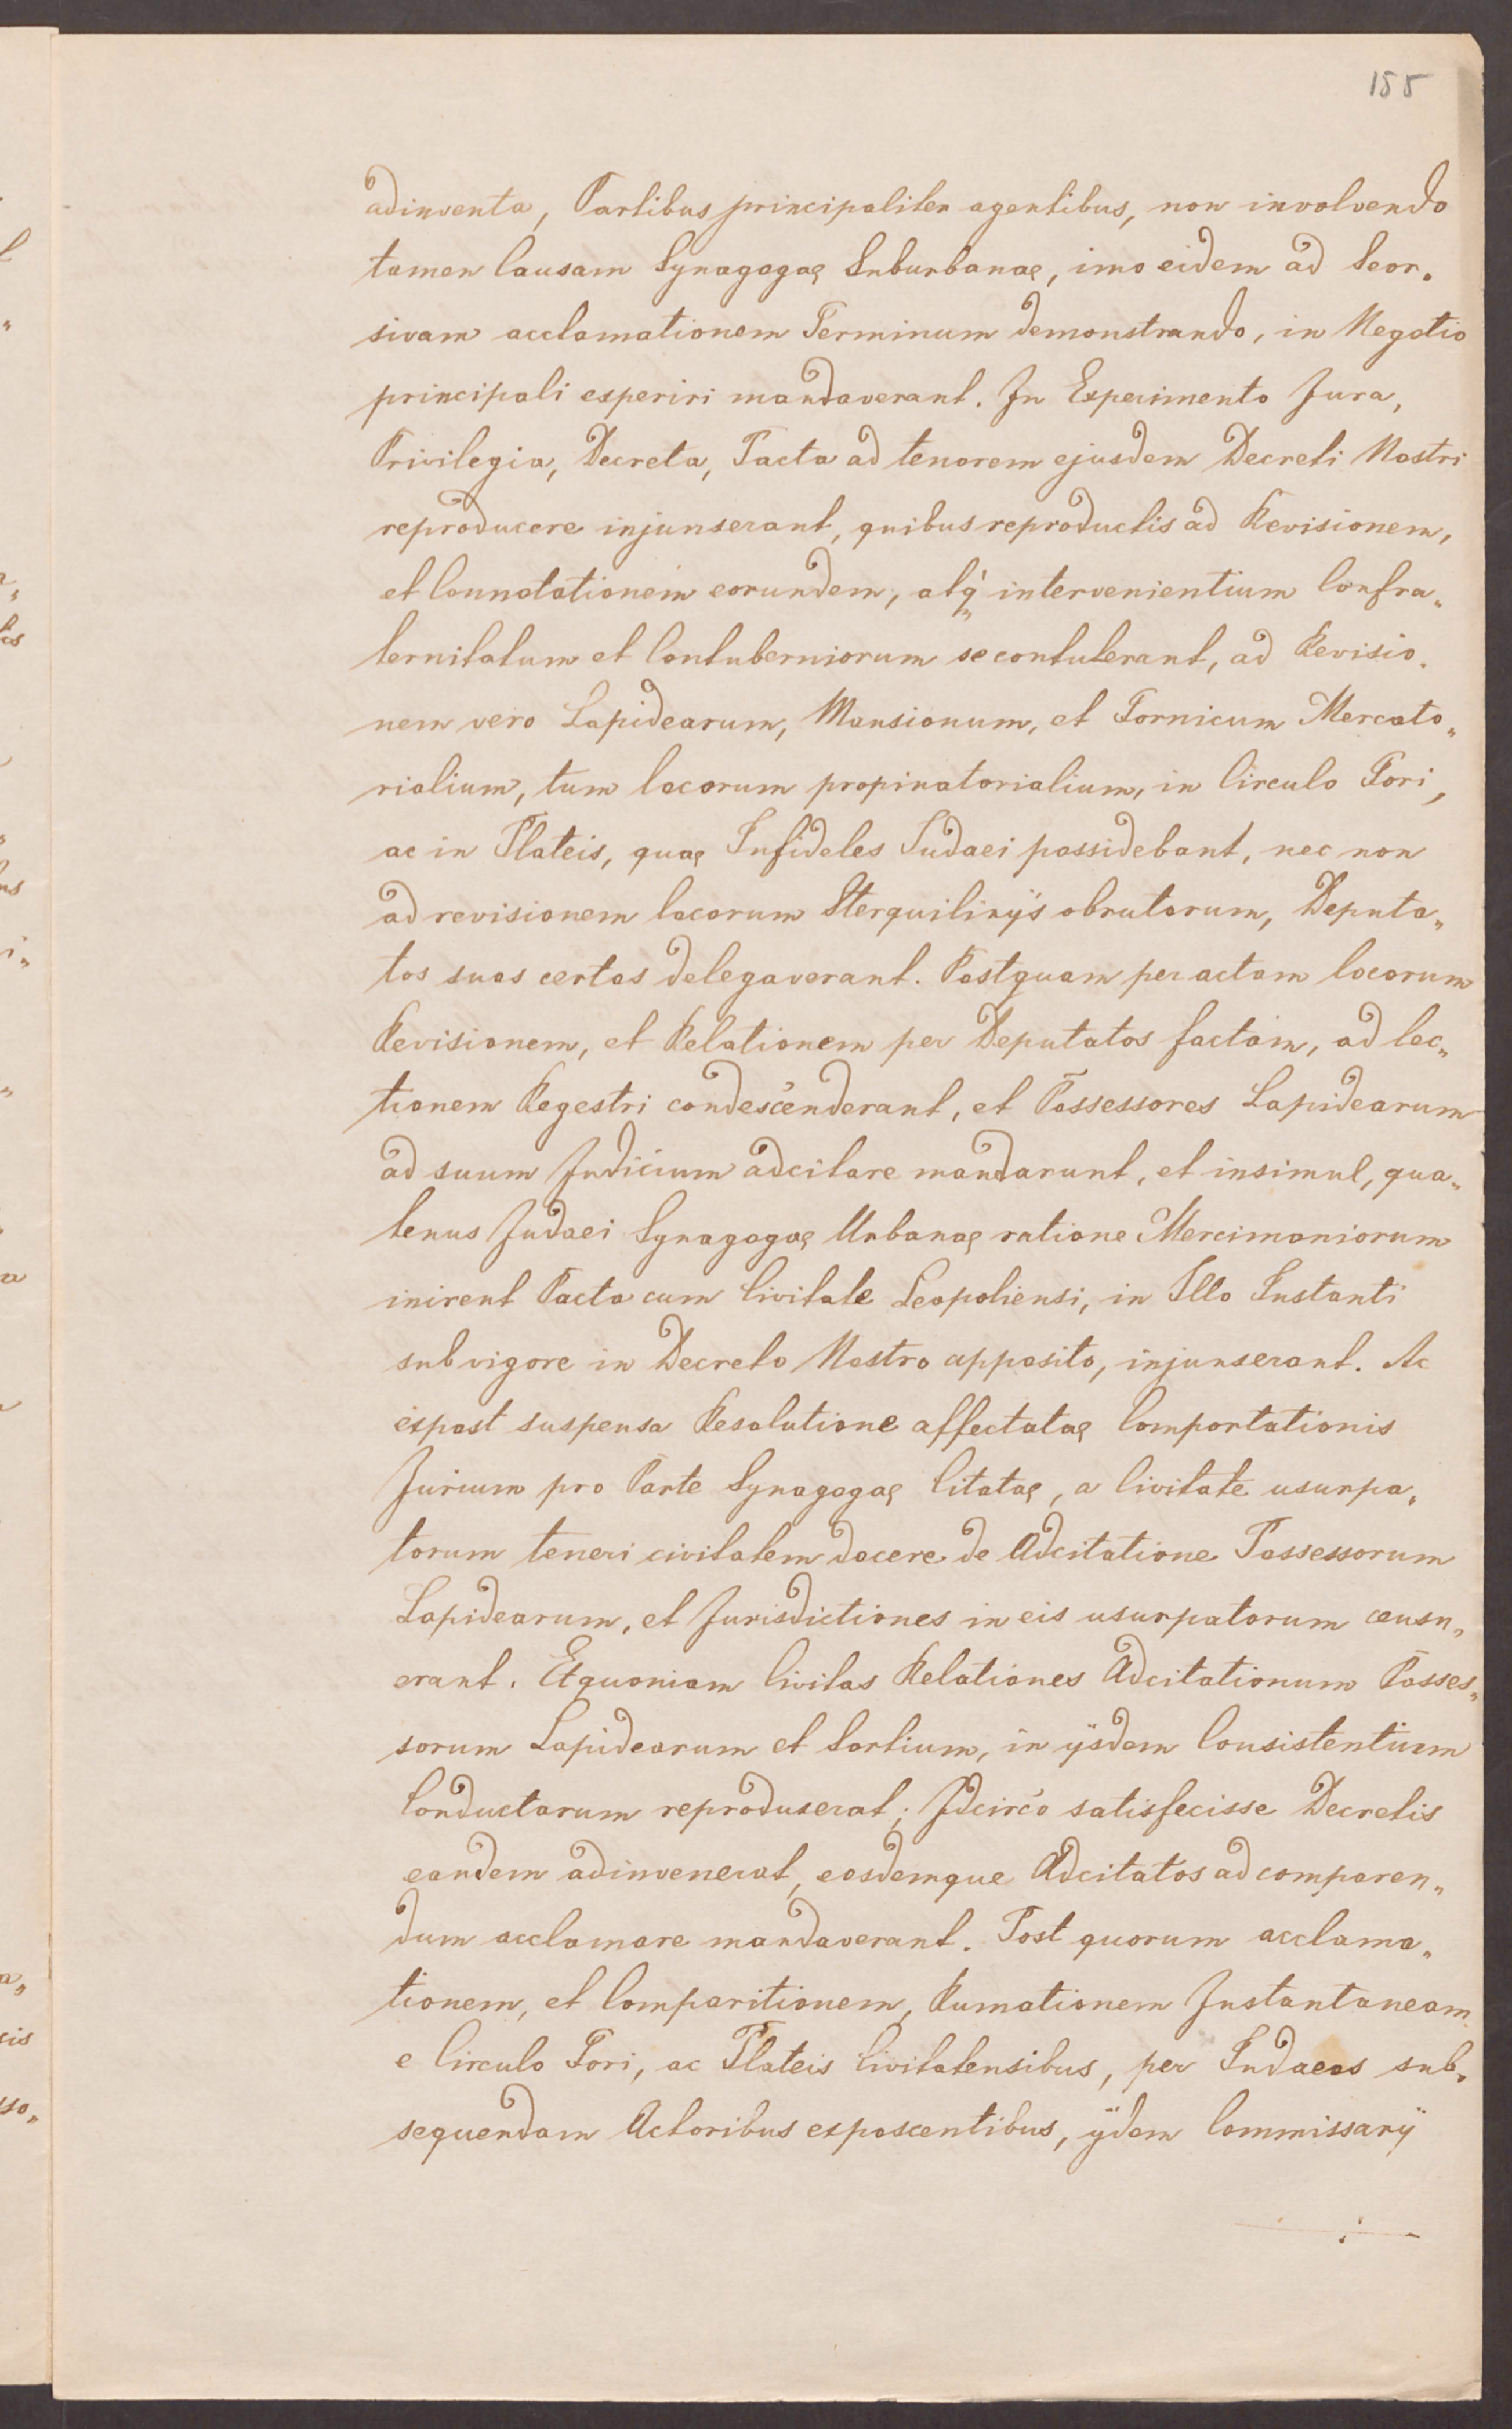 155
adinventa, Partibus principaliter agentibus, non involvendo
tamen Causam Synagogæ Suburbanæ, imo eidem ad Seor„
sivam acclamationem Terminum demonstrando, in Negotio
principali experiri mandaverant. In Experimento Jura,
Privilegia, Decreta, Pacta ad tenorem ejusdem Decreti Nostri
reproducere injunxerant, quibus reproductis ad Revisionem,
et Connotationem eorundem, atq́ intervenientium Confra„
ternitatum et Contuberniorum se contulerant, ad Revisio„
nem vero Lapidearum, Mansionum, et Fornicum Mercato„
rialium, tum locorum propinatorialium, in Circulo Fori,
ac in Plateis, quæ Infideles Judaei possidebant, nec non
ad revisionem locorum Sterquilinÿs obrutorum, Deputa„
tos suos certos delegaverant. Postquam per actam locorum
Revisionem, et Relationem per Deputatos factam, ad lec„
tionem Regestri condescenderant, et Possessores Lapidearum
ad suum Judicium adcitare mandarunt, et insimul, qua„
tenus Judaei Synagogæ Urbanæ ratione Mercimoniorum
inirent Pacta cum Civitate Leopoliensi, in Illo Instanti
sub vigore in Decreto Nostro apposito, injunxerant. Ac
expost suspensa Resolutione affectatæ Comportationis
Jurium pro Parte Synagogæ Citatæ, a Civitate usurpa„
torum teneri civitatem docere de Adcitatione Possessorum
Lapidearum, et Jurisdictiones in eis usurpatorum censu„
erant. Et quoniam Civitas Relationes Adcitationum Posses„
sorum Lapidearum et Sortium, in ÿsdem Consistentium
Conductarum reproduxerat; Idcirco satisfecisse Decretis
eandem adinvenerat, eosdemque Adcitatos ad comparen„
dum acclamare mandaverant. Post quorum acclama„
tionem, et Comparitionem, Rumationem Instantaneam
e Circulo Fori, ac Plateis Civitatensibus, per Judaeos sub„
sequendam Actoribus exposcentibus, ÿdem Commissarÿ